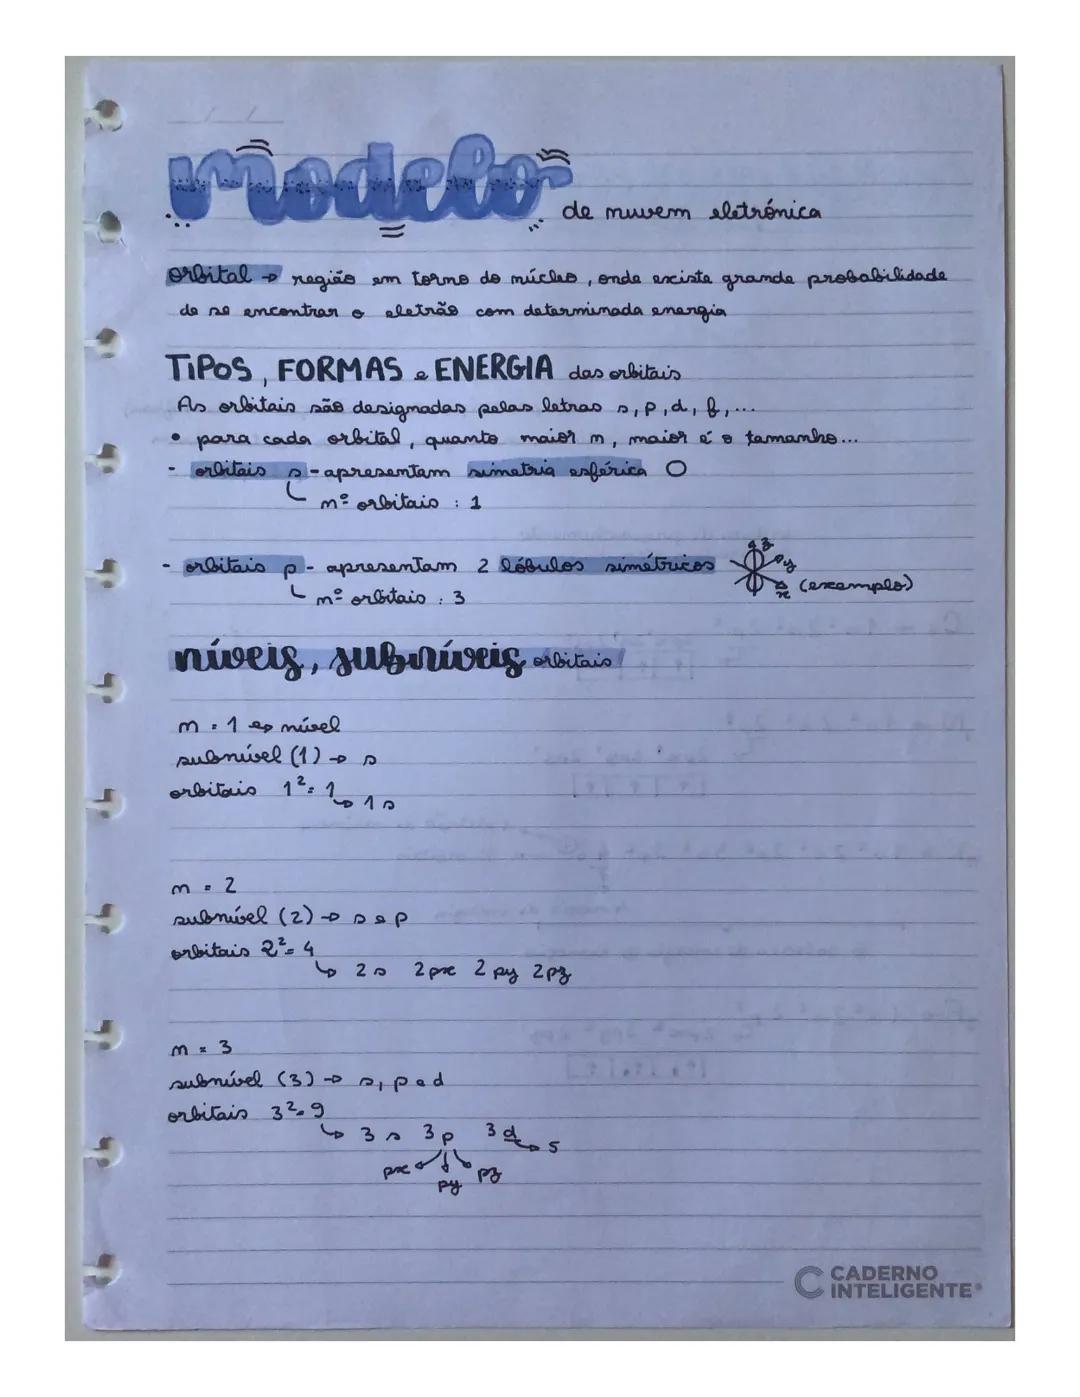 modelo de nuvem eletrónica
orbital → região em torno do núcleo, onde existe grande probabilidade
de se encontrar o eletrão com determinada energia
TIPOS, FORMAS e ENERGIA das orbitais
As orbitais são designadas pelas letras s, p, d, f, ...
• para cada orbital, quanto maior n, maior é o tamanho...
- orbitais s - apresentam simetria esférica
nº orbitais : 1
- orbitais p - apresentam 2 lóbulos simétricos
z
y
x
(exemplo)
nº orbitais : 3
níveis, subníveis orbitais
n = 1 → nível
subnível (1) → s
orbitais 1² = 1
→ 1s
n = 2
subnível (2) → s e p
orbitais 2² = 4
→ 2s 2px 2py 2pz
n = 3
subnível (3) → s, p e d
orbitais 3² = 9
→ 3s 3p 3d → 5
px py pz
CADERNO
INTELIGENTE®